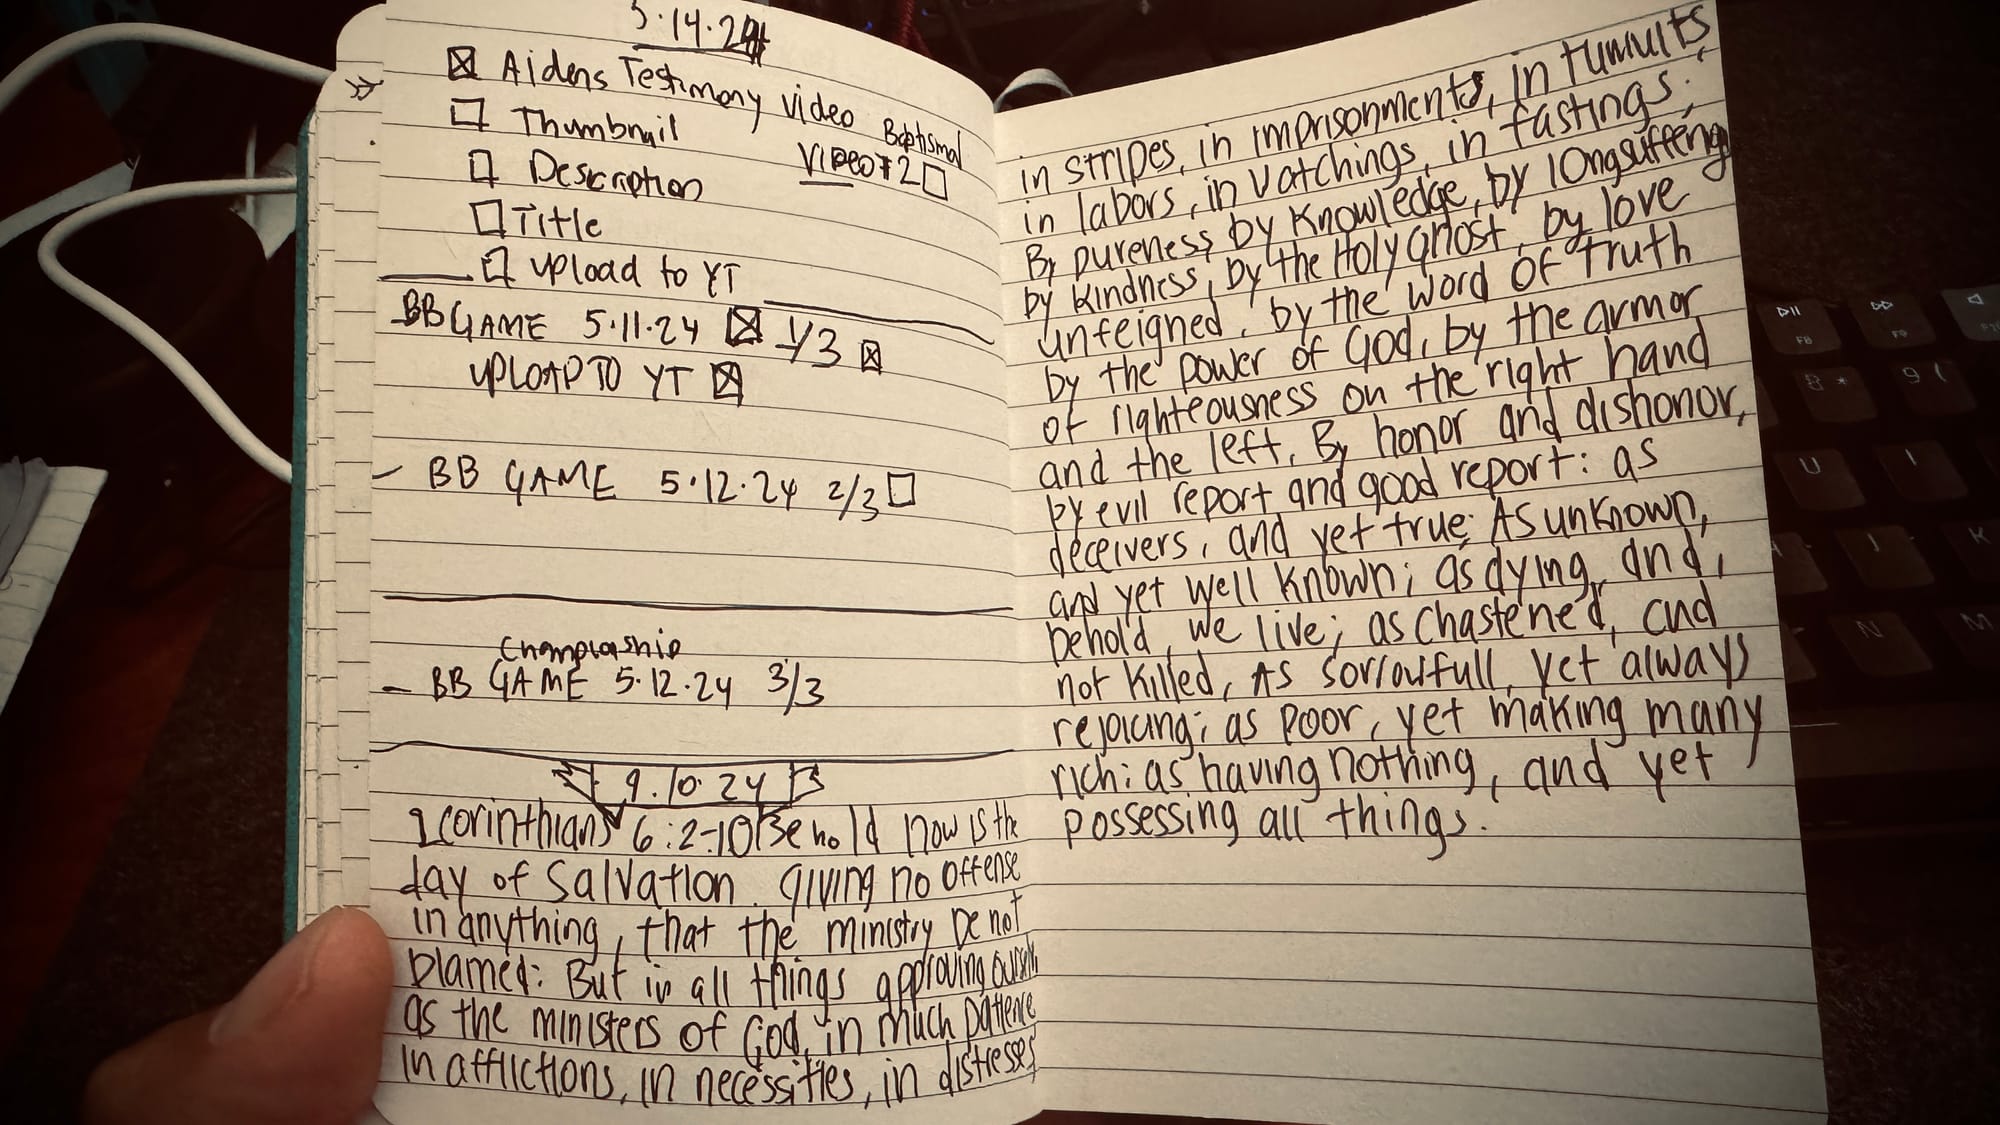 5.14.24
☒ Aidens Testimony Video
☐ Thumbnail
Baptismal
VIDEO #2 ☐
☐ Description
☐ Title
☐ Upload to YT
BB GAME 5.11.24 ☒ 1/3 ☒
UPLOAD TO YT ☒
- BB GAME 5.12.24 2/3 ☐
Championship
- BB GAME 5.12.24 3/3
9.10.24
2 Corinthians 6:2-10 Behold now is the
day of Salvation. Giving no offense
in anything, that the ministry be not
blamed: But in all things approving ourselves
as the ministers of God, in much patience
in afflictions, in necessities, in distresses
in stripes, in imprisonments, in tumults,
in labors, in watchings, in fastings;
By pureness by Knowledge, by longsuffering
by kindness, by the Holy Ghost, by love
unfeigned, by the word of Truth
by the power of God, by the armor
of righteousness on the right hand
and the left, By honor and dishonor,
by evil report and good report: as
deceivers, and yet true; As unknown,
and yet well known; as dying, and,
behold, we live; as chastened, and
not killed, As sorrowfull, yet always
rejoicing; as poor, yet making many
rich: as having nothing, and yet
possessing all things.
F8
F9
8 *
9 (
U
I
J
K
N
M